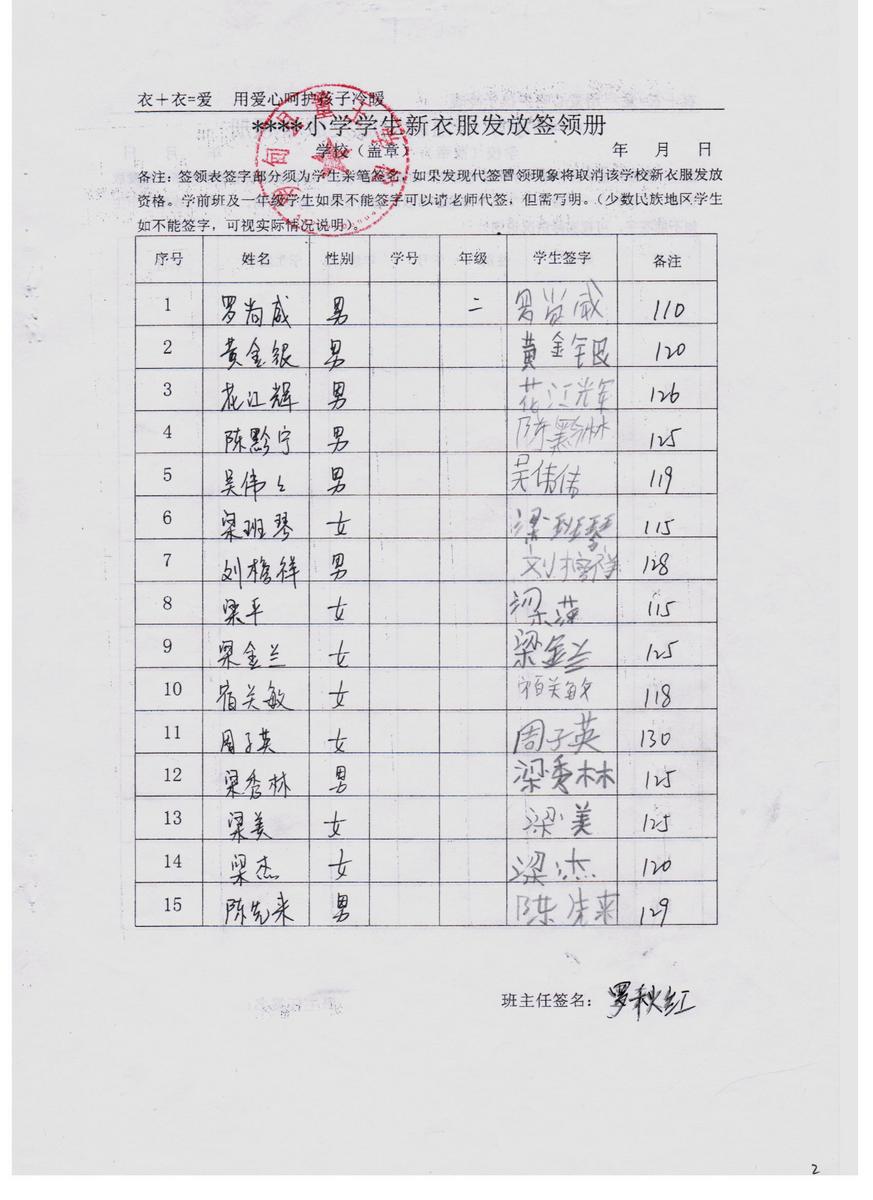 衣＋衣=爱 用爱心呵护孩子冷暖
****小学学生新衣服发放签领册
学校（盖章） 年 月 日
备注：签领表签字部分须为学生亲笔签名，如果发现代签冒领现象将取消该学校新衣服发放
资格。学前班及一年级学生如果不能签字可以请老师代签，但需写明。（少数民族地区学生
如不能签字，可视实际情况说明）。
序号 姓名 性别 学号 年级 学生签字 备注
1 罗尚威 男 二 罗尚威 110
2 黄金银 男 黄金银 120
3 花江辉 男 花江辉 126
4 陈黔宁 男 陈黔林 125
5 吴伟々 男 吴伟伟 119
6 梁班琴 女 梁班琴 115
7 刘榕祥 男 刘榕祥 128
8 梁平 女 梁萍 115
9 梁金兰 女 梁金兰 125
10 宿关敏 女 宿关敏 118
11 周子英 女 周子英 130
12 梁秀林 男 梁秀林 125
13 梁美 女 梁美 125
14 梁杰 女 梁杰 120
15 陈先来 男 陈先来 129
班主任签名：罗秋红
2